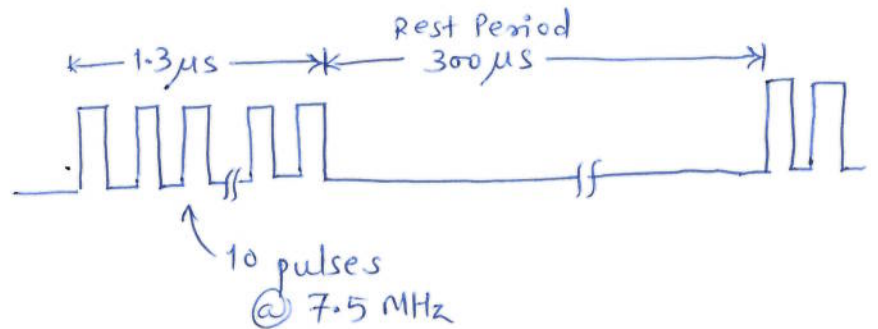 Rest Period
1.3 μs
300 μs
10 pulses
@ 7.5 MHz